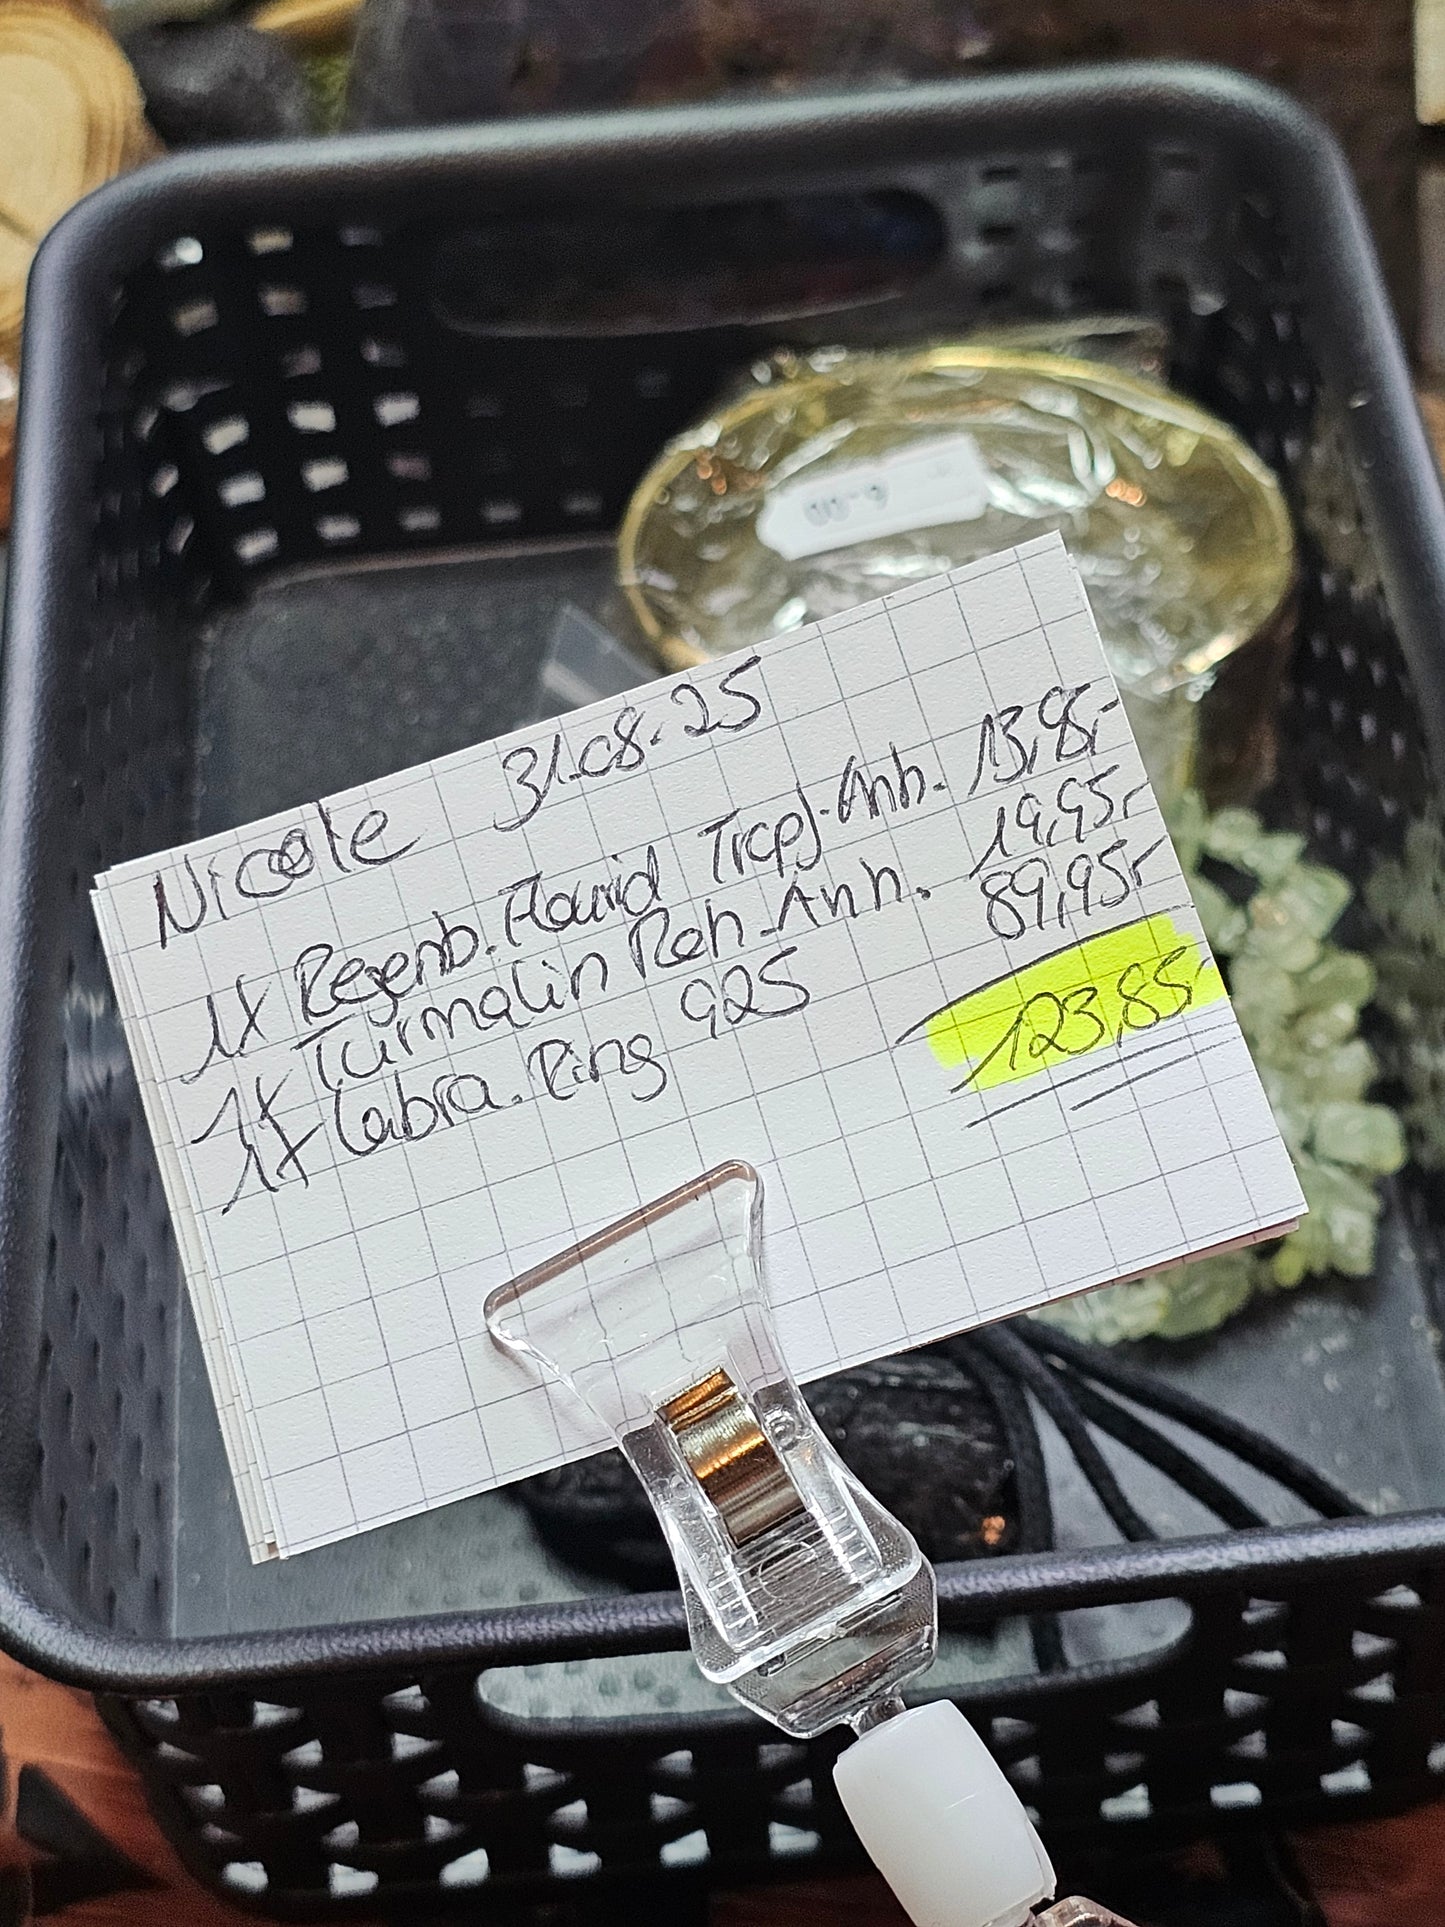 Nicole 31.08.25
1x Regenb. Flourid Tropf-Anh. 13,95,-
1x Turmalin Roh-Anh. 19,95,-
1x Labra. Ring 925 89,95,-
123,85,-